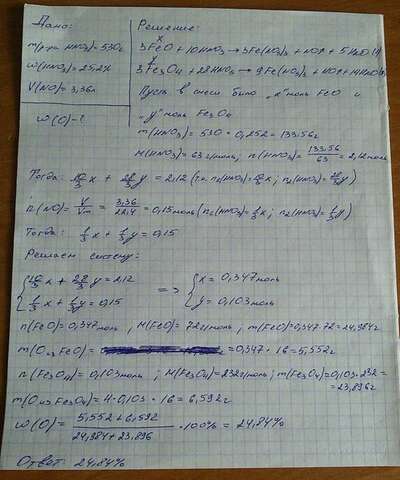 Дано:
Решение:
m(р-ра HNO3) = 530г
3FeO + 10HNO3 → 3Fe(NO3)3 + NO↑ + 5H2O (1)
w(HNO3) = 25,2%
3Fe3O4 + 28HNO3 → 9Fe(NO3)3 + NO↑ + 14H2O
V(NO) = 3,36л
Пусть в смеси было „x" моль FeO и
„y" моль Fe3O4
w(O) - ?
m(HNO3) = 530 · 0,252 = 133,56г
M(HNO3) = 63 г/моль; n(HNO3) = 133,56/63 = 2,12 моль
Тогда: 10/3 x + 28/3 y = 2,12 (т.к. n1(HNO3) = 10/3 x; n2(HNO3) = 28/3 y)
n(NO) = V/Vm = 3,36/22,4 = 0,15 моль (n1(HNO3) = 1/3 x; n2(HNO3) = 1/3 y)
Тогда: 1/3 x + 1/3 y = 0,15
Решаем систему:
10/3 x + 28/3 y = 2,12 => x = 0,347 моль
1/3 x + 1/3 y = 0,15 y = 0,103 моль
n(FeO) = 0,347 моль, M(FeO) = 72 г/моль; m(FeO) = 0,347 · 72 = 24,984г
m(O из FeO) = = 0,347 · 16 = 5,552г
n(Fe3O4) = 0,103 моль; M(Fe3O4) = 232 г/моль; m(Fe3O4) = 0,103 · 232 =
= 23,896г
m(O из Fe3O4) = 4 · 0,103 · 16 = 6,592г
w(O) = 5,552 + 6,592 / 24,984 + 23,896 · 100% = 24,84%
Ответ: 24,84%